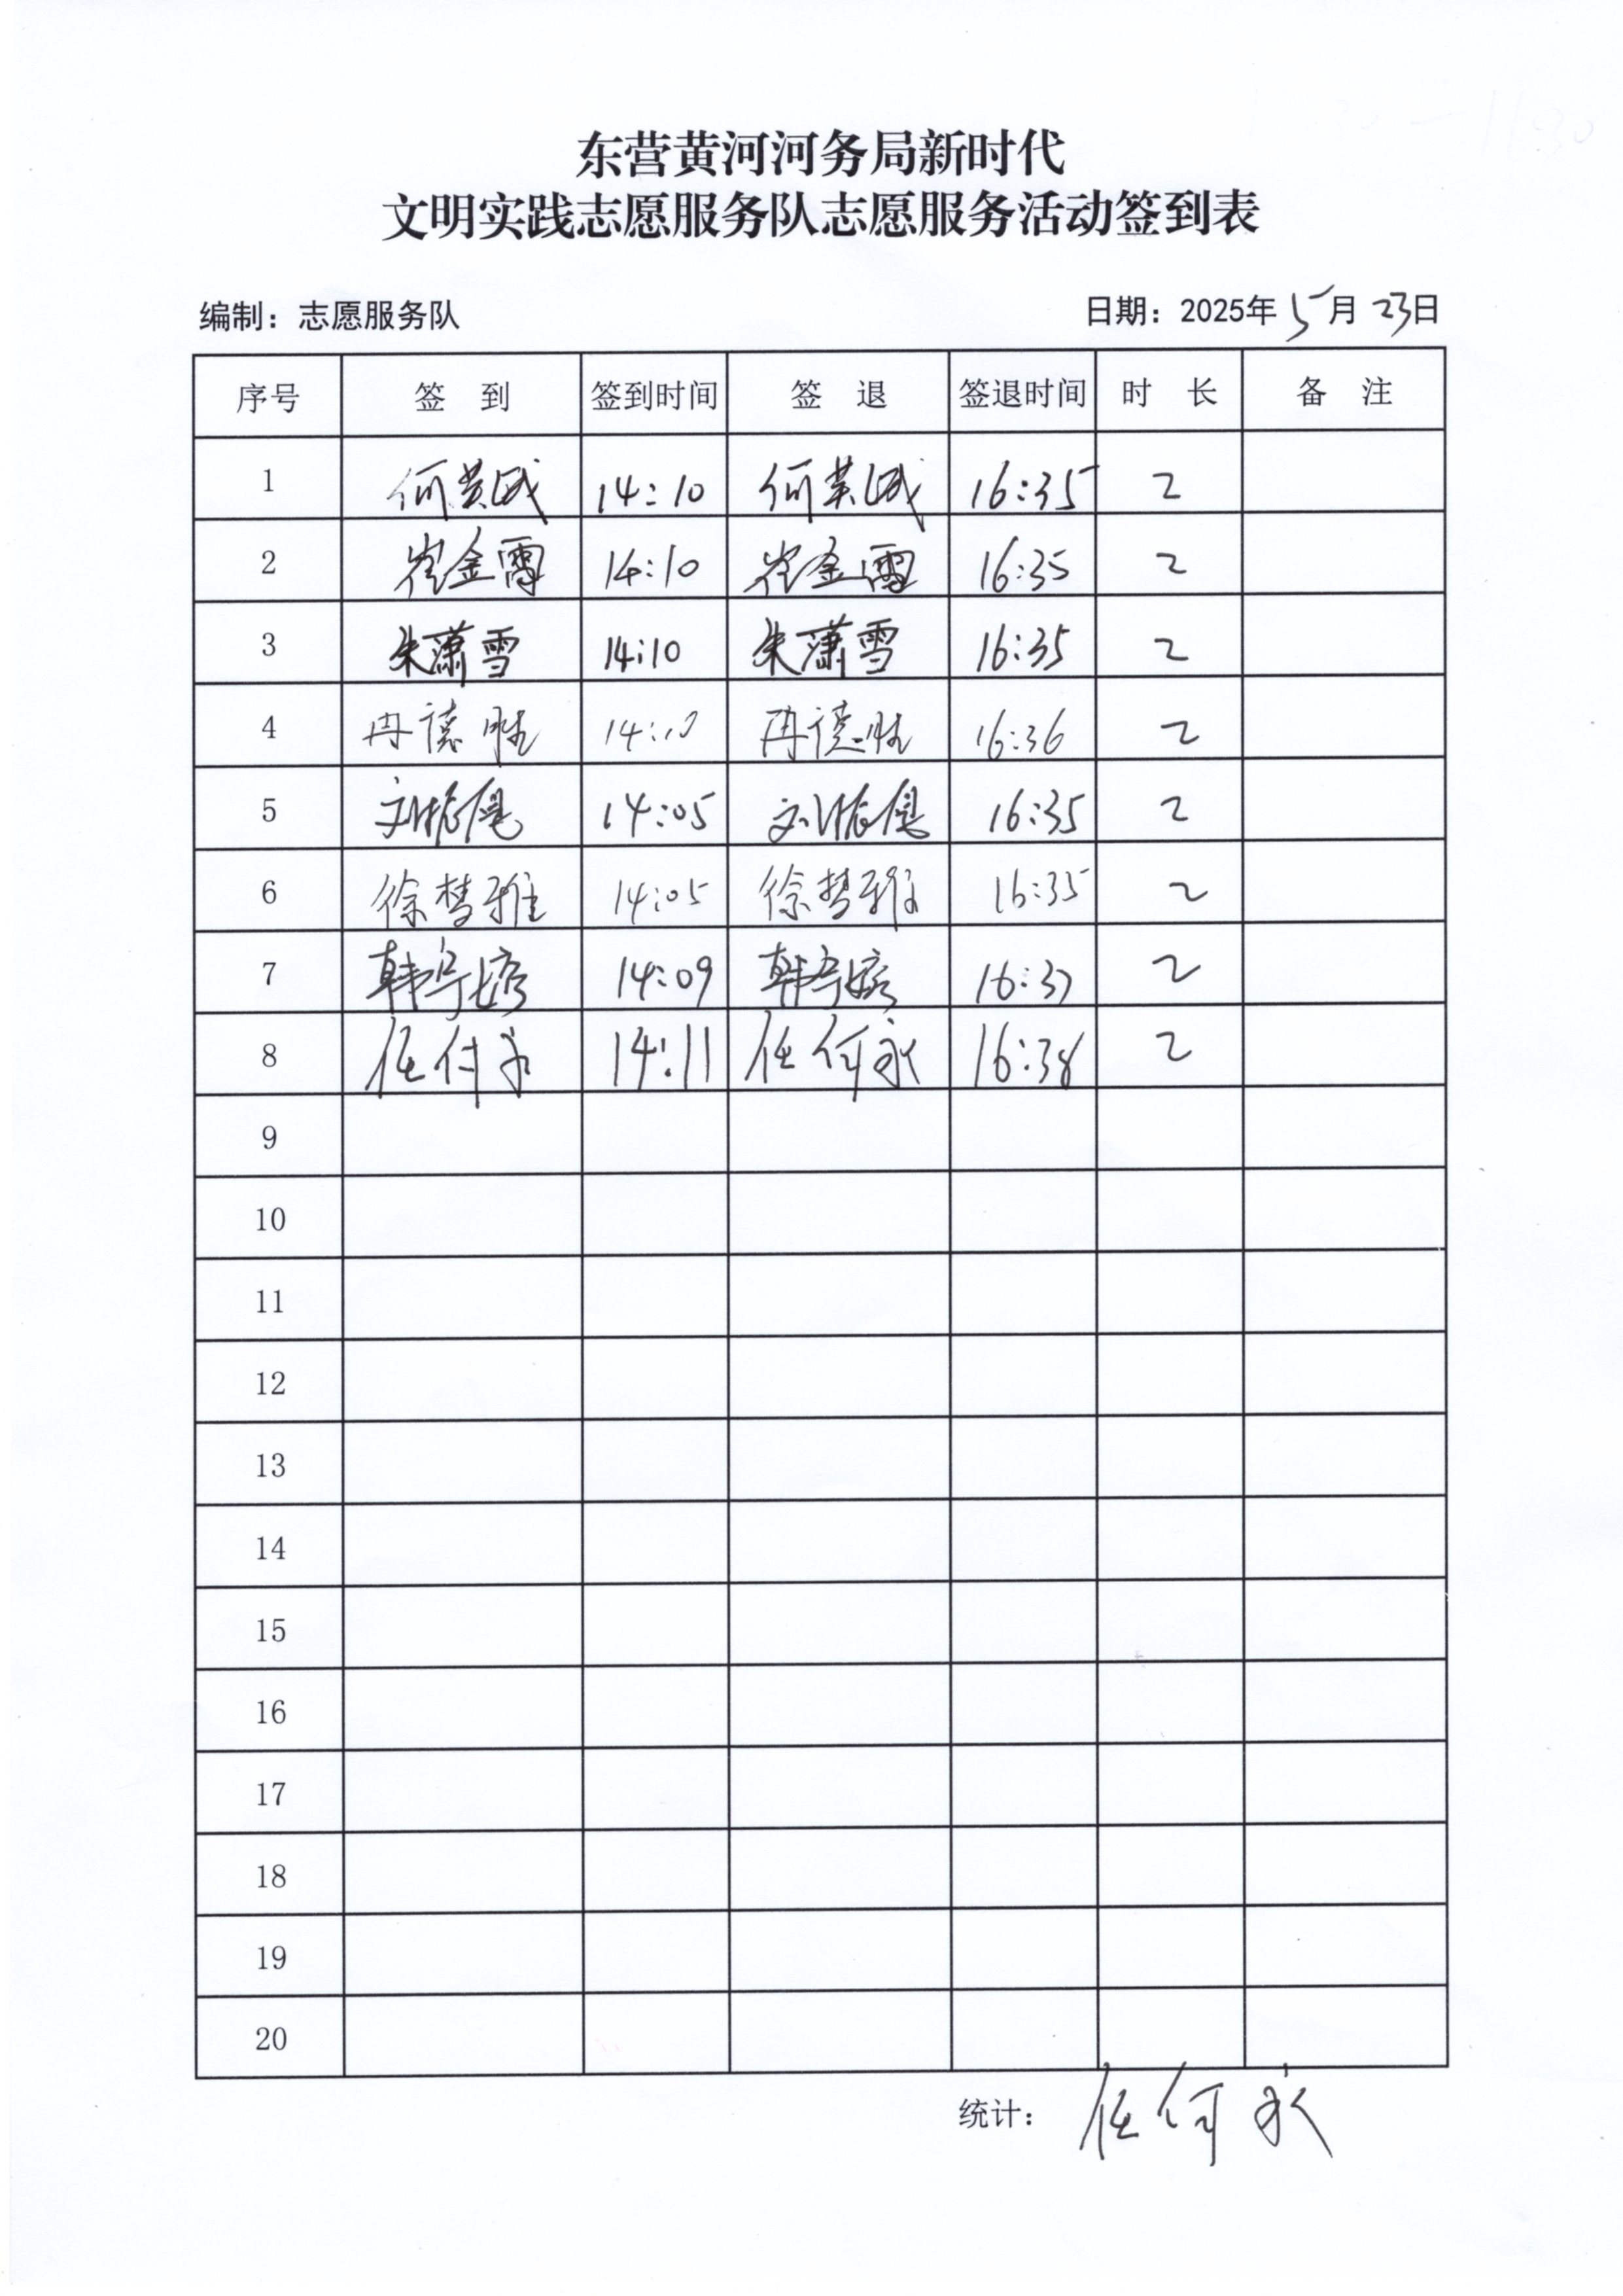 东营黄河河务局新时代
文明实践志愿服务队志愿服务活动签到表
编制：志愿服务队 日期：2025年5月23日
序号 签 到 签到时间 签 退 签退时间 时 长 备 注
1 何英 14:10 何英 16:35 2
2 崔金雷 14:10 崔金雷 16:35 2
3 朱潇雪 14:10 朱潇雪 16:35 2
4 冉德胜 14:10 冉德胜 16:36 2
5 刘振 14:05 刘振 16:35 2
6 徐梦雅 14:05 徐梦雅 16:35 2
7 韩 14:09 韩 16:37 2
8 任何永 14:11 任何永 16:38 2
9
10
11
12
13
14
15
16
17
18
19
20
统计： 任何永